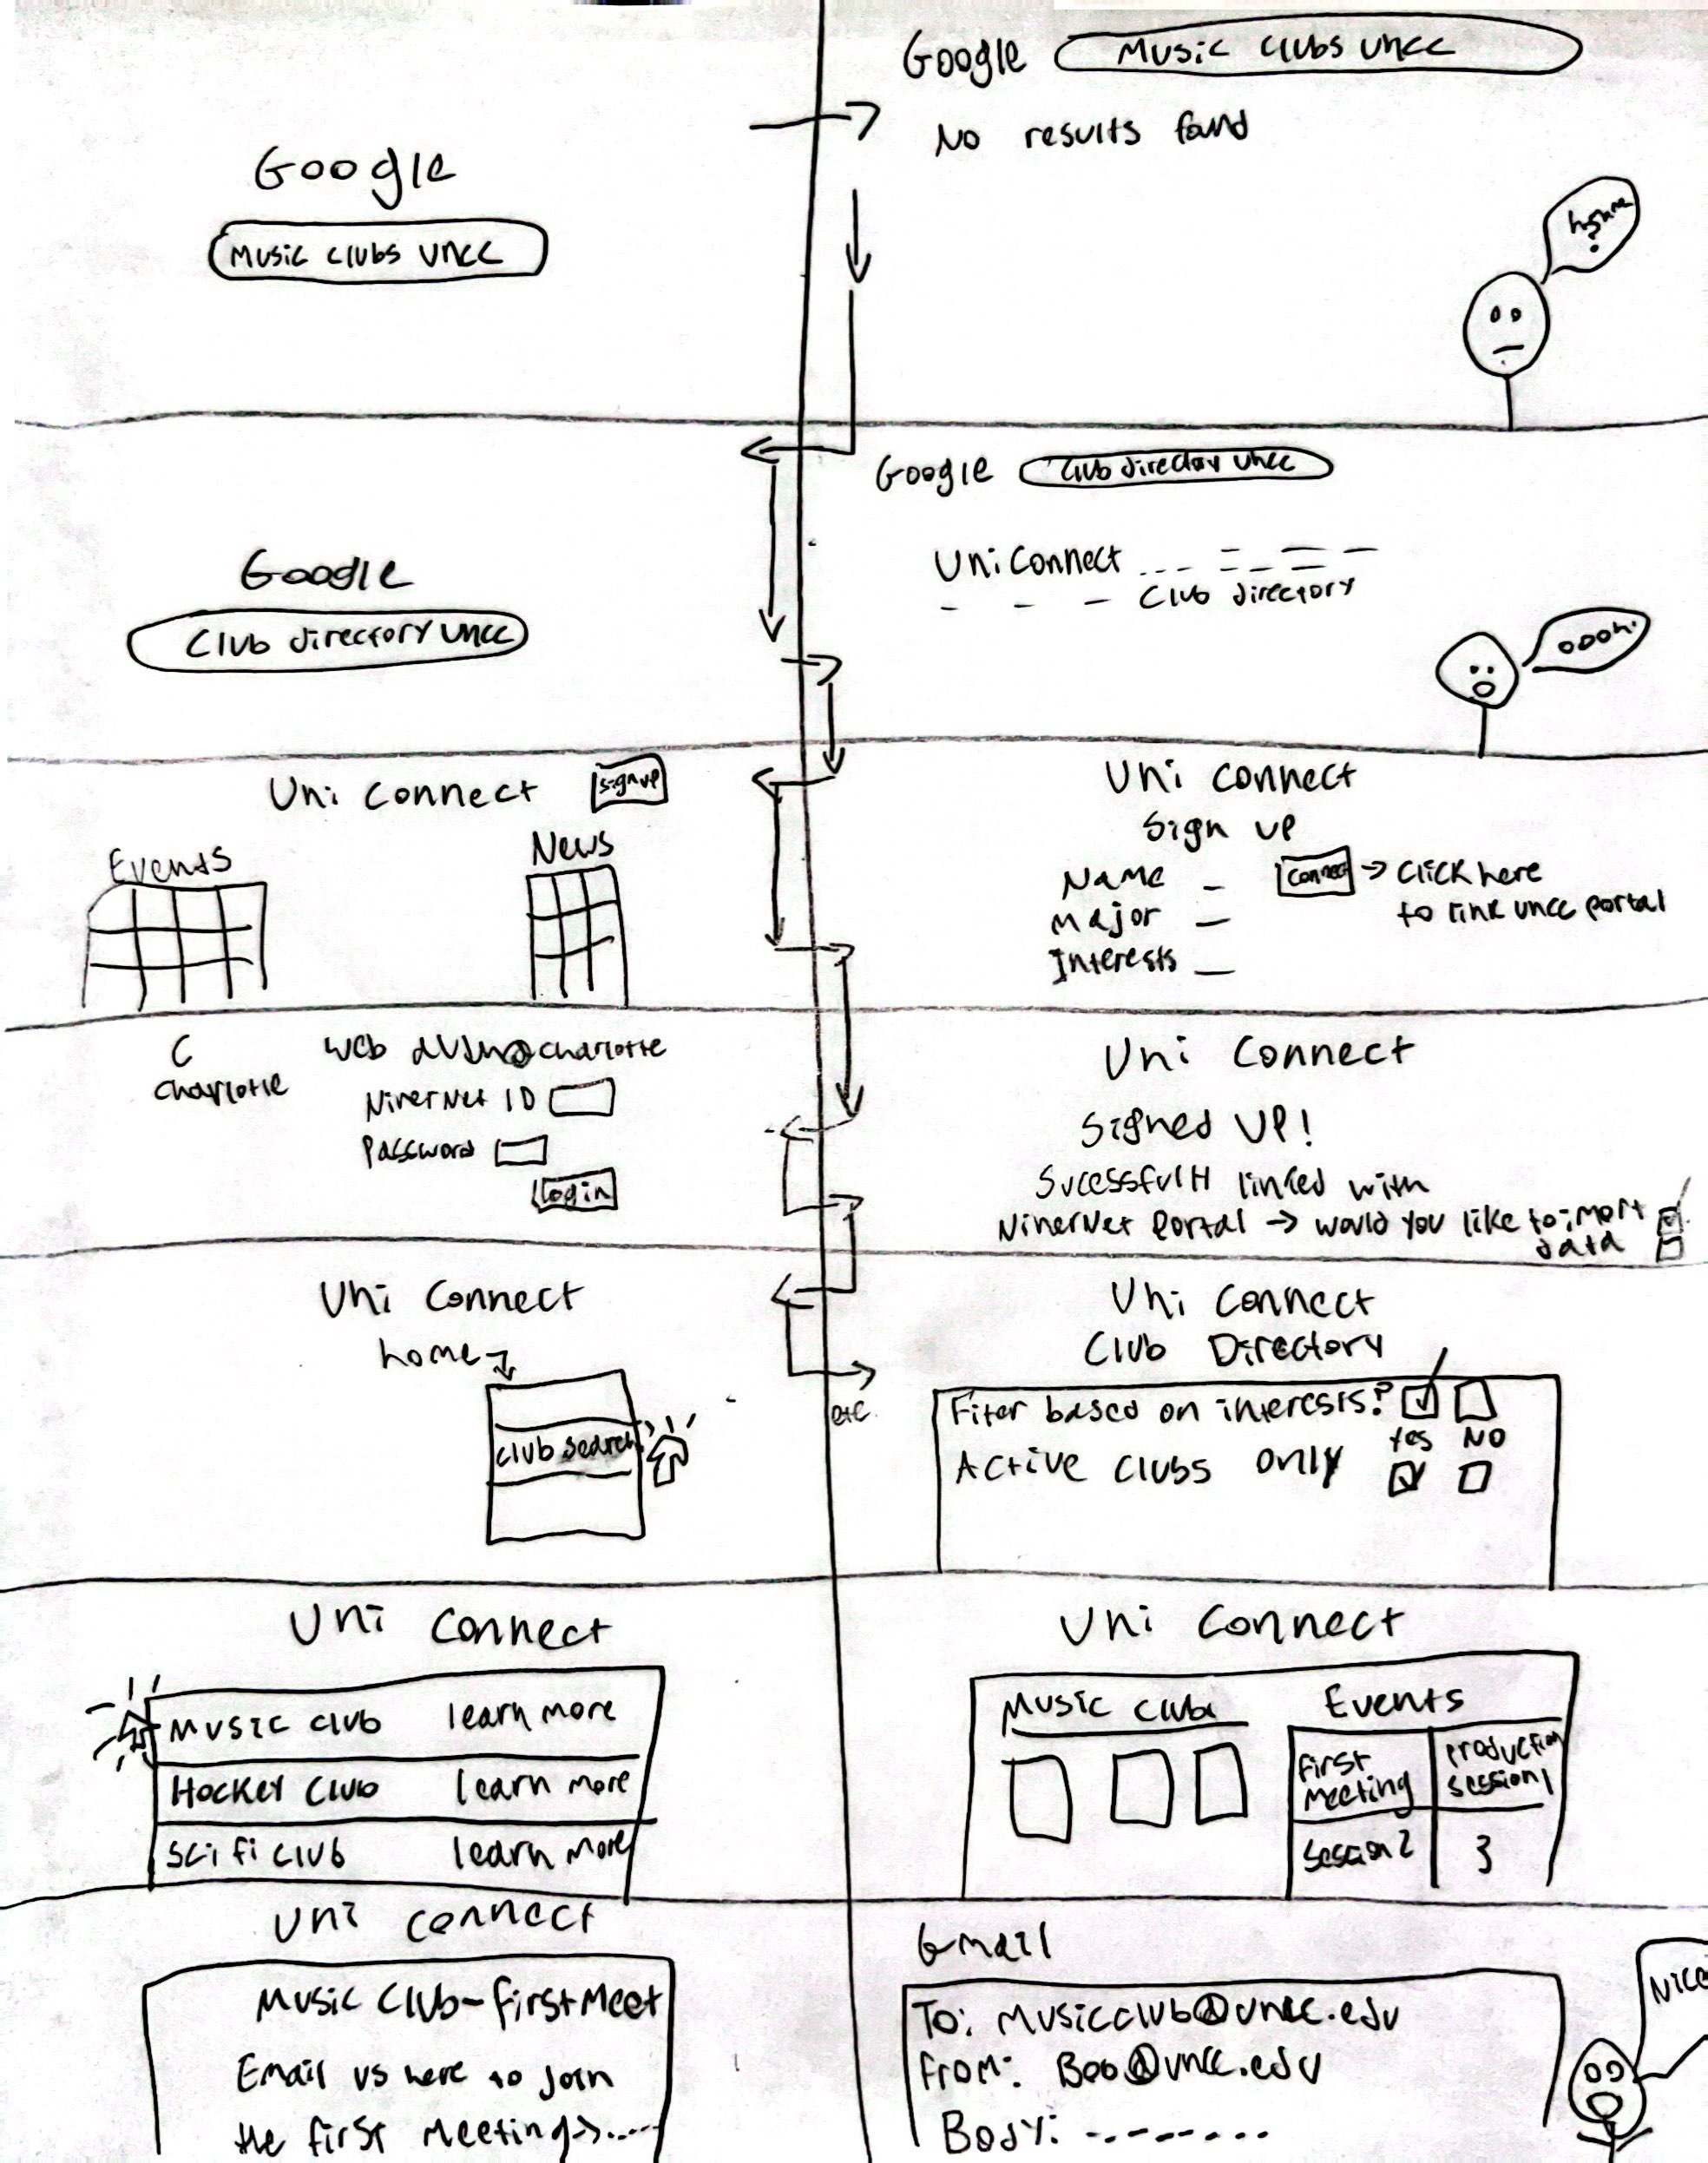 Google
Music clubs uncc
Google Music clubs uncc
No results found
Google
Club directory uncc
Google Club directory uncc
UniConnect
Club directory
oooh.
Uni Connect sign up
Events
News
Uni Connect
Sign up
Name
Major
Interests
Connect → Click here
to link uncc portal
C
Charlotte
NinerNet ID
Password
Login
Uni Connect
Signed Up!
linked with
NinerNet Portal → would you like to import
data
Uni Connect
home
club search
etc.
Uni Connect
Club Directory
Filter based on interests?
Yes NO
Active clubs only
Uni Connect
Music club learn more
Hockey club learn more
Sci fi club learn more
Uni Connect
Music Club
Events
First
Meeting
Production
session 1
Session 2
3
Uni Connect
Music Club-first Meet
Email us here to join
the first meeting→.....
Gmail
To: musicclub@uncc.edu
From: Bob@uncc.edu
Body: --------
Nice